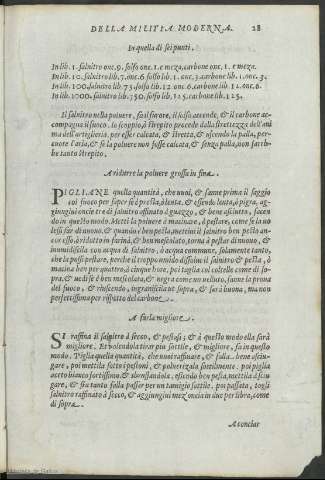 DELLA MILITIA MODERNA. 28
In quella di sei punti.
In lib. 1. salnitro onc. 9. solfo onc. 1. e meza, carbone onc. 1. e meza.
In lib. 10. salnitro lib. 7. onc. 6 solfo lib. 1. onc. 3. carbone lib. 1. onc. 3.
In lib. 100. salnitro lib. 75. solfo lib. 12. onc. 6. carbone lib. 12. onc. 6.
In lib. 1000. salnitro lib. 750. solfo lib. 125. carbone lib. 125.
Il salnitro nella poluere, fa il fuoco, il solfo accende, & il carbone ac-
compagna il fuoco. lo scoppio, ò strepito procede dalla strettezza dell'ani
ma dell'artiglieria. per esser calcata, & stretta, & uscendo la palla, per-
cuote l'aria, & se la poluere non fusse calcata, & senza palla, non fareb-
be tanto strepito.
A ridurre la poluere grossa in fina.
PIGLIANE quella quantità, che uuoi, & fanne prima il saggio
col fuoco per saper se è presta, ò lenta, & essendo lenta, ò pigra, ag-
giungini oncie tre di salnitro affinato à guazzo, & bene asciutto, secon
do in questo modo. Metti la poluere à macinare, ò pestare, come se la uo
lessi far di nuouo, & quando è ben pesta, mettini il salnitro ben pesto an-
cor esso, ò ridutto in farina, & ben mescolato, torna à pestar di nuouo, &
inumidiscila con acqua di salnitro, ò acqua commune, solamente tanto,
che la possi pestare, perche il troppo umido dissolue il salnitro & pesta, ò
macina ben per quattro, ò cinque hore, poi taglia col coltello come di so-
pra, & uedi se è ben mescolata, & negra come un uelluto, fanne la proua
del fuoco, & riuscendo, ingraniscila ut supra, & sarà buona, ma non
perfettissima per rispetto del carbone.
A farla migliore.
SI raffina il salnitro à secco, & pestasi, & à questo modo ella sarà
migliore. Et uolendola tirar piu sottile, & migliore, fa in questo
modo. Piglia quella quantità, che uuoi raffinare, & falla bene asciu-
gare, poi mettila sotto i pestoni, & poluerizala sottilmente. poi piglia
aceto bianco fortissimo, & abreuiandola, essendo ben pesta, mettila à asciu-
gare, & sia tanto falla passar per un tamigio sottile. poi passata, togli
salnitro raffinato à secco, & aggiungini mez'oncia in due per libra, come
di sopra.
A conciar